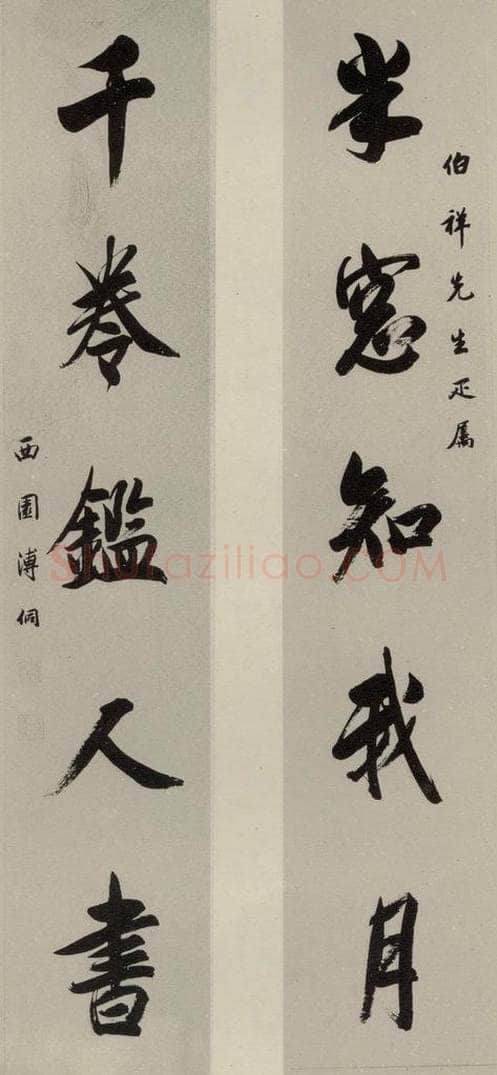 伯祥先生疋属
半窓知我月
千卷鑑人書
西園溥侗
Shufaziliao.COM